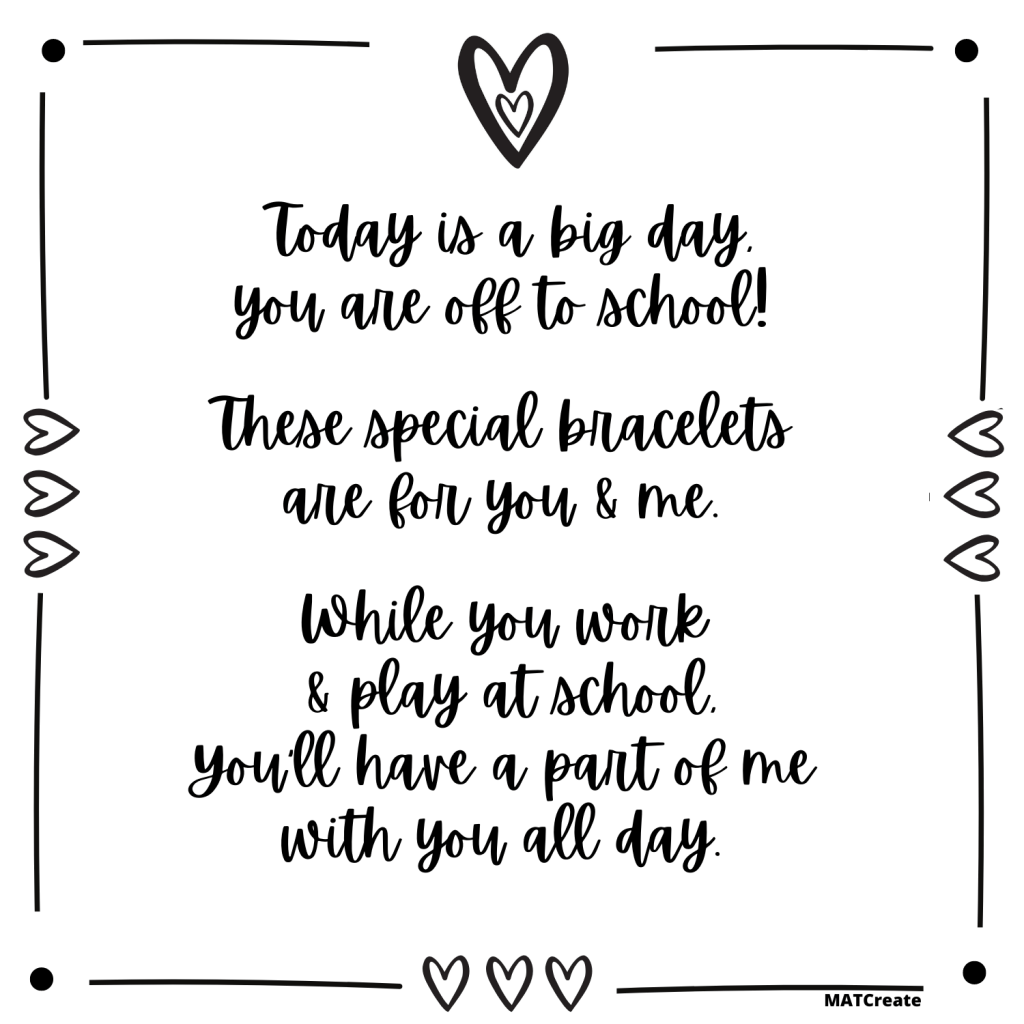 Today is a big day,
you are off to school!
These special bracelets
are for you & me.
While you work
& play at school,
You'll have a part of me
with you all day.
MATCreate